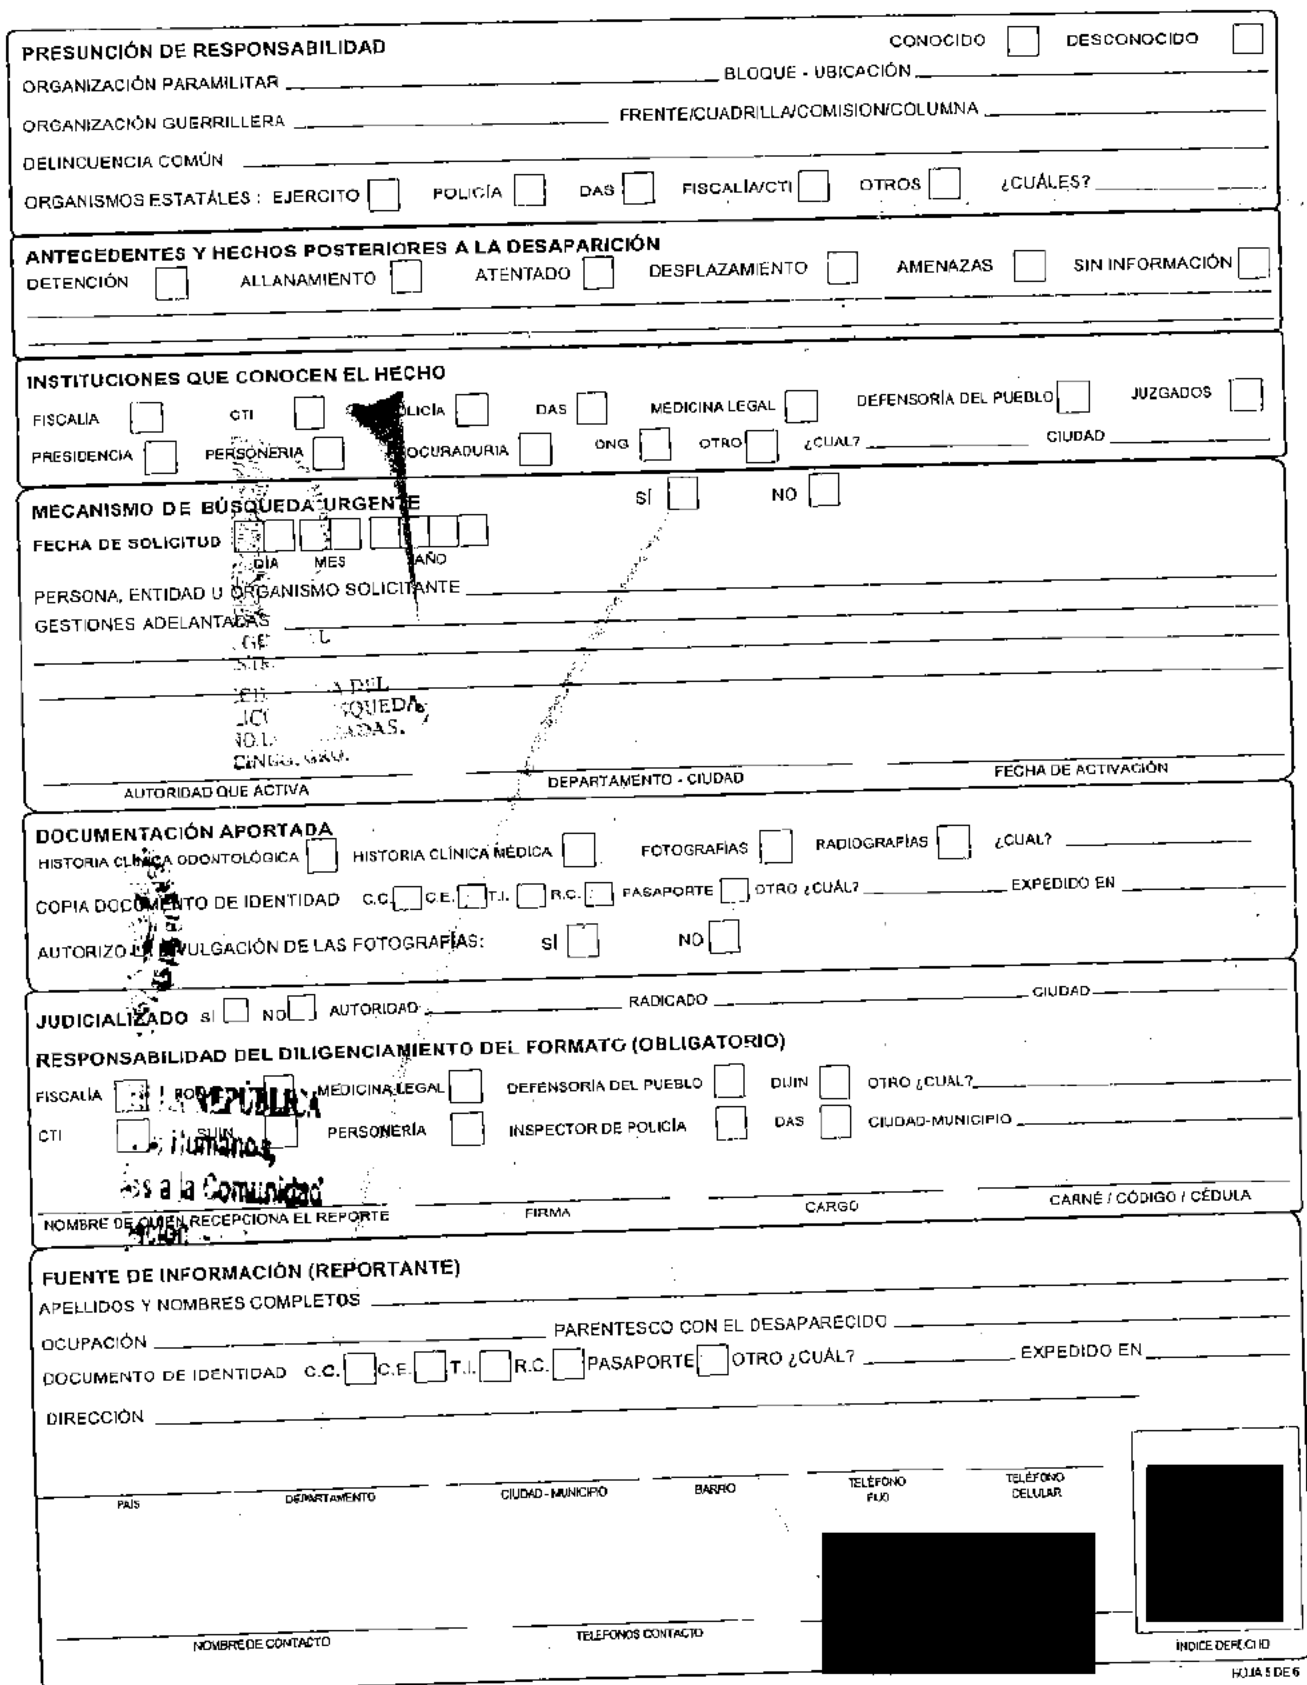 PRESUNCIÓN DE RESPONSABILIDAD CONOCIDO DESCONOCIDO
ORGANIZACIÓN PARAMILITAR BLOQUE - UBICACIÓN
ORGANIZACIÓN GUERRILLERA FRENTE/CUADRILLA/COMISION/COLUMNA
DELINCUENCIA COMÚN
ORGANISMOS ESTATÁLES : EJERCITO POLICÍA DAS FISCALÍA/CTI OTROS ¿CUÁLES?
ANTECEDENTES Y HECHOS POSTERIORES A LA DESAPARICIÓN
DETENCIÓN ALLANAMIENTO ATENTADO DESPLAZAMIENTO AMENAZAS SIN INFORMACIÓN
INSTITUCIONES QUE CONOCEN EL HECHO
FISCALIA CTI LICÍA DAS MEDICINA LEGAL DEFENSORÍA DEL PUEBLO JUZGADOS
PRESIDENCIA PERSONERIA OCURADURIA ONG OTRO ¿CUAL? CIUDAD
MECANISMO DE BÚSQUEDA URGENTE SÍ NO
FECHA DE SOLICITUD
DÍA MES AÑO
PERSONA, ENTIDAD U ORGANISMO SOLICITANTE
GESTIONES ADELANTADAS
A DEL
SQUEDA,
ADAS.
CINGO, GRO.
AUTORIDAD QUE ACTIVA DEPARTAMENTO - CIUDAD FECHA DE ACTIVACIÓN
DOCUMENTACIÓN APORTADA
HISTORIA CLÍNICA ODONTOLÓGICA HISTORIA CLÍNICA MÉDICA FOTOGRAFÍAS RADIOGRAFÍAS ¿CUAL?
COPIA DOCUMENTO DE IDENTIDAD C.C. C.E. T.I. R.C. PASAPORTE OTRO ¿CUÁL? EXPEDIDO EN
AUTORIZO LA DIVULGACIÓN DE LAS FOTOGRAFÍAS: SÍ NO
JUDICIALIZADO SÍ NO AUTORIDAD RADICADO CIUDAD
RESPONSABILIDAD DEL DILIGENCIAMIENTO DEL FORMATO (OBLIGATORIO)
FISCALÍA MEDICINA LEGAL DEFENSORÍA DEL PUEBLO DIJIN OTRO ¿CUAL?
LA REPÚBLICA
CTI SIJIN PERSONERÍA INSPECTOR DE POLICÍA DAS CIUDAD-MUNICIPIO
Humanos,
a la Comunidad
NOMBRE DE QUIEN RECEPCIONA EL REPORTE FIRMA CARGO CARNÉ / CÓDIGO / CÉDULA
FUENTE DE INFORMACIÓN (REPORTANTE)
APELLIDOS Y NOMBRES COMPLETOS
OCUPACIÓN PARENTESCO CON EL DESAPARECIDO
DOCUMENTO DE IDENTIDAD C.C. C.E. T.I. R.C. PASAPORTE OTRO ¿CUÁL? EXPEDIDO EN
DIRECCIÓN
PAÍS DEPARTAMENTO CIUDAD - MUNICIPIO BARRO TELÉFONO FIJO TELÉFONO CELULAR
NOMBRE DE CONTACTO TELEFONOS CONTACTO ÍNDICE DERECHO
HOJA 5 DE 6